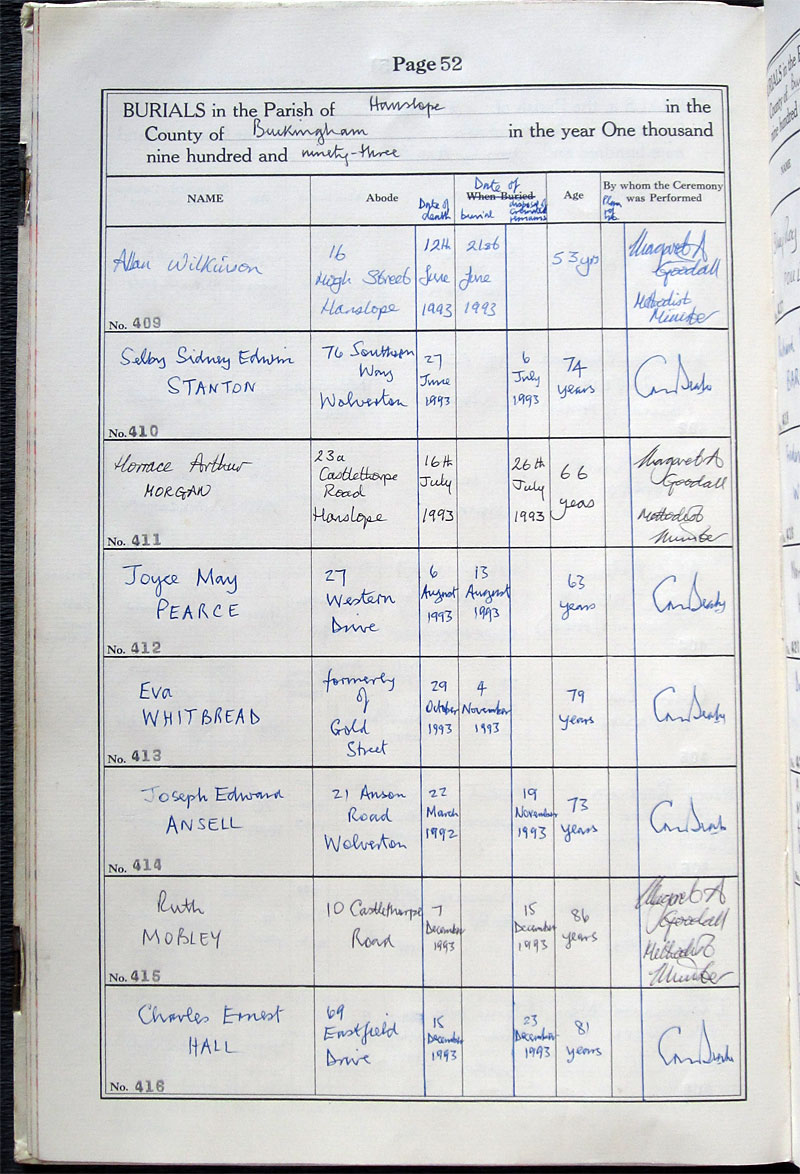 Page 52
BURIALS in the Parish of Hanslope in the
County of Buckingham in the year One thousand
nine hundred and ninety-three
NAME
Abode
Date of death
Date of
When Buried
burial
disposal of cremated remains
Age
Plan ref no
By whom the Ceremony
was Performed
Allan Wilkinson
No. 409
16
High Street
Hanslope
12th
June
1993
21st
June
1993
53 yrs
Margaret A
Goodall
Methodist
Minister
Selby Sidney Edwin
STANTON
No. 410
76 Southern
Way
Wolverton
27
June
1993
6
July
1993
74
years
Horrace Arthur
MORGAN
No. 411
23a
Castlethorpe
Road
Hanslope
16th
July
1993
26th
July
1993
66
yeas
Margaret A
Goodall
Methodist
Minister
Joyce May
PEARCE
No. 412
27
Western
Drive
6
August
1993
13
August
1993
63
years
Eva
WHITBREAD
No. 413
formerly
of
Gold
Street
29
October
1993
4
November
1993
79
years
Joseph Edward
ANSELL
No. 414
21 Anson
Road
Wolverton
22
March
1992
19
November
1993
73
years
Ruth
MOBLEY
No. 415
10 Castlethorpe
Road
7
December
1993
15
December
1993
86
years
Margaret A
Goodall
Methodist
Minister
Charles Ernest
HALL
No. 416
69
Eastfield
Drive
15
December
1993
23
December
1993
81
years